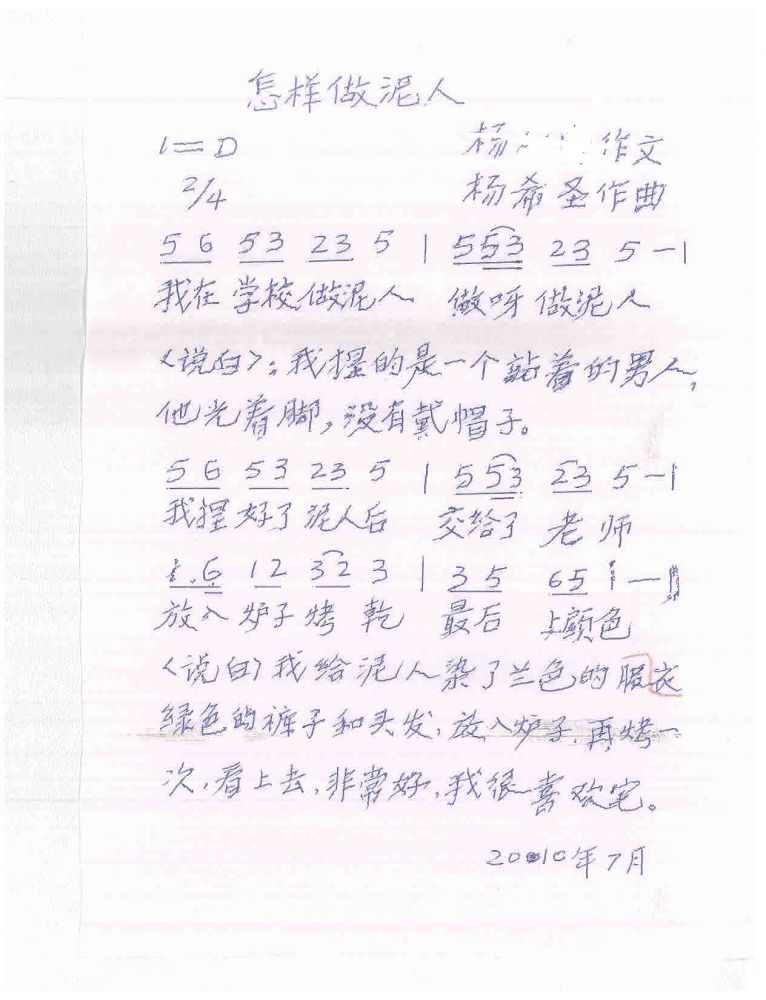 怎样做泥人
1=D 杨 作文
2/4 杨希圣作曲
5 6 5 3 2 3 5 | 5 5 3 2 3 5 — |
我在学校做泥人 做呀做泥人
<说白>：我捏的是一个站着的男人，
他光着脚，没有戴帽子。
5 6 5 3 2 3 5 | 5 5 3 2 3 5 — |
我捏好了泥人后 交给了老师
1. 6 1 2 3 2 3 | 3 5 6 5 i — ‖
放入炉子烤乾 最后上颜色
<说白>我给泥人染了兰色的服衣
绿色的裤子和头发，放入炉子，再烤一
次，看上去，非常好，我很喜欢它。
2010年7月